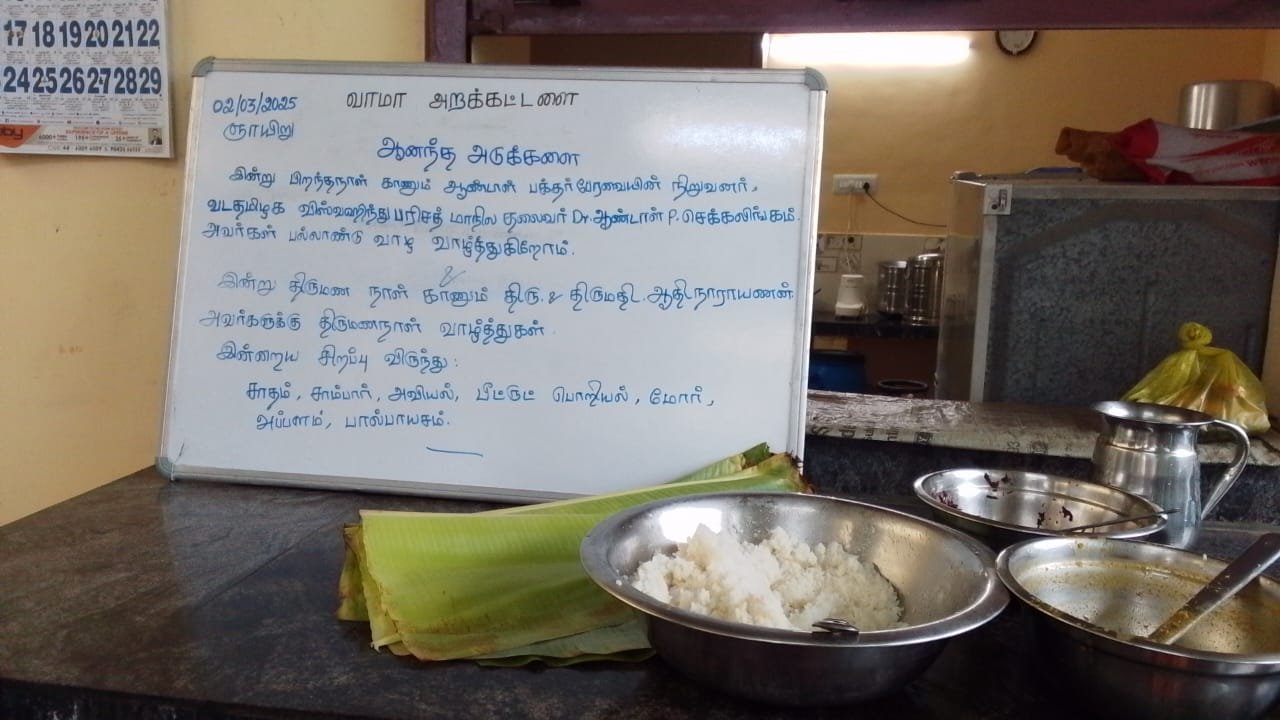 17 18 19 20 21 22
24 25 26 27 28 29
02/03/2025
ஞாயிறு
வாமா அறக்கட்டளை
ஆனந்த அடுக்களை
இன்று பிறந்தநாள் காணும் ஆண்டாள் பக்தர்பேரவையின் நிறுவனர்,
வடதமிழக விஸ்வஹிந்து பரிசத் மாநில தலைவர் Dr. ஆண்டாள் P. செக்கலிங்கம்.
அவர்கள் பல்லாண்டு வாழ வாழ்த்துகிறோம்.
இன்று திருமண நாள் காணும் திரு. & திருமதி. ஆதிநாராயணன்.
அவர்களுக்கு திருமணநாள் வாழ்த்துகள்.
இன்றைய சிறப்பு விருந்து:
சாதம், சாம்பார், அவியல், பீட்ரூட் பொறியல், மோர்,
அப்பளம், பால்பாயசம்.